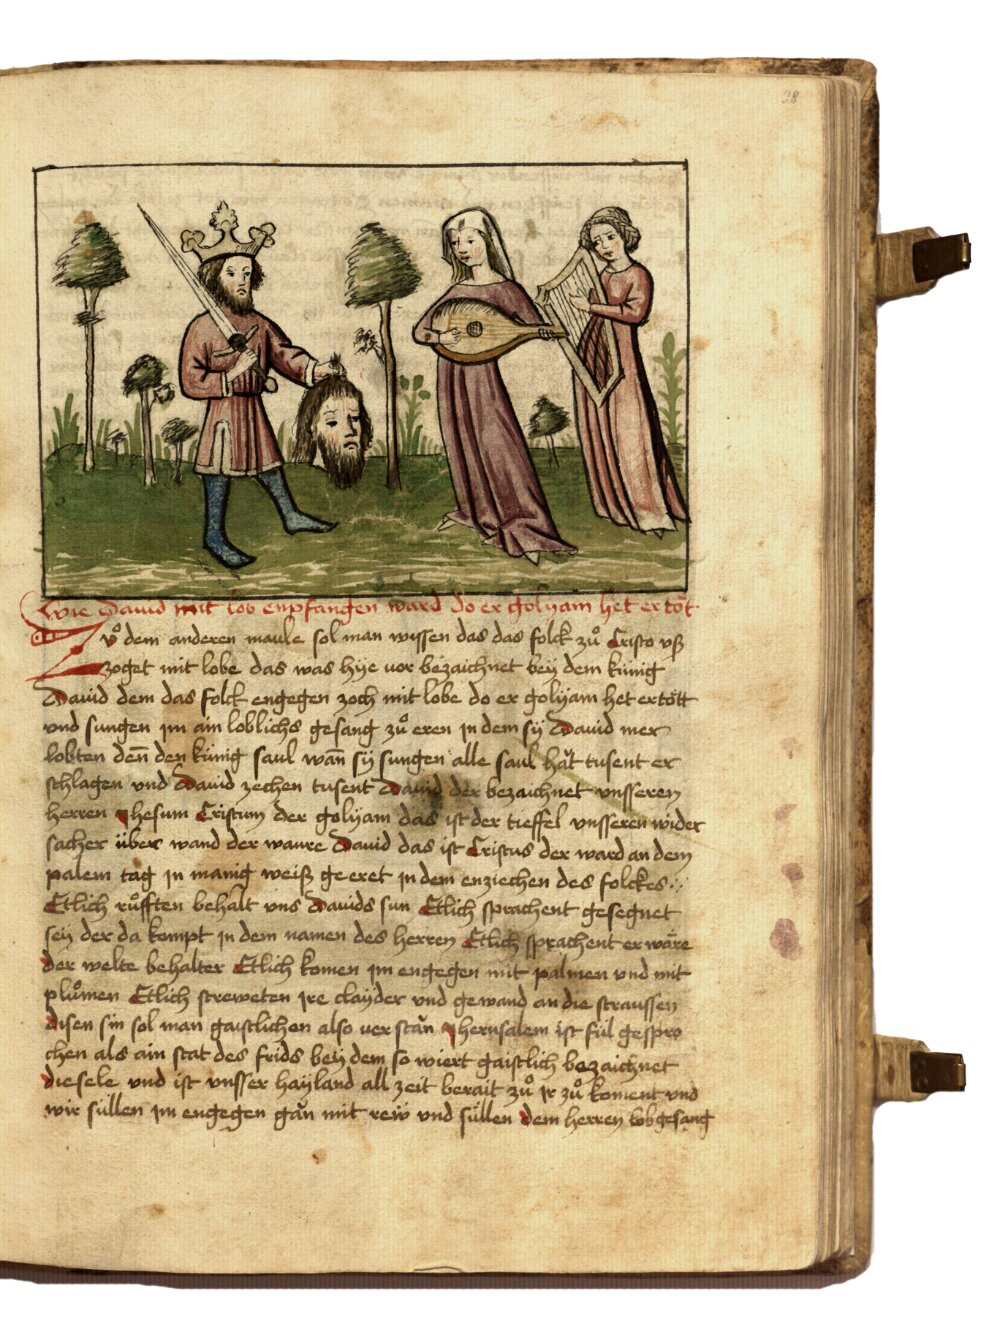 38
Wie Dauid mit lob enpfangen ward do er golyam het ertöt
Zů dem anderen maule sol man wyssen das das folck zů Cristo vß
zoget mit lobe das was hÿe vor bezaichnet beÿ dem künig
Dauid dem das folck engegen zoch mit lobe do er golÿam het ertött
vnd sungen im ain loblichs gesang zů eren in dem sÿ Dauid mer
lobten den̄ den künig saul wan̄ sÿ sungen alle saul hǎt tusent er
schlagen vnd Dauid zechen tusent Dauid der bezaichnet vnsseren
herren jhesum Cristum der golÿam das ist der tieffel vnsseren wider
sacher über wand der waure Dauid das ist Cristus der ward an dem
palem tag in manig weiß geeret in dem enziechen des folckes :·
Etlich růfften behalt vns Dauids sun Etlich sprachent gesegnet
seÿ der da kompt in dem namen des herren Etlich sprachent er wäre
der welte behalter Etlich komen im engegen mit palmen vnd mit
plůmen Etlich streweten ire clayder vnd gewand an die straussen
disen sin sol man gaistlichen also verstǎn jherusalem ist fúl gespro
chen als ain stat des frids beÿ dem so wiert gaistlich bezaichnet
die sele vnd ist vnsser haÿland all zeit berait zů ir zů koment vnd
wir süllen im engegen gǎn mit rew vnd süllen dem herren lobgesang